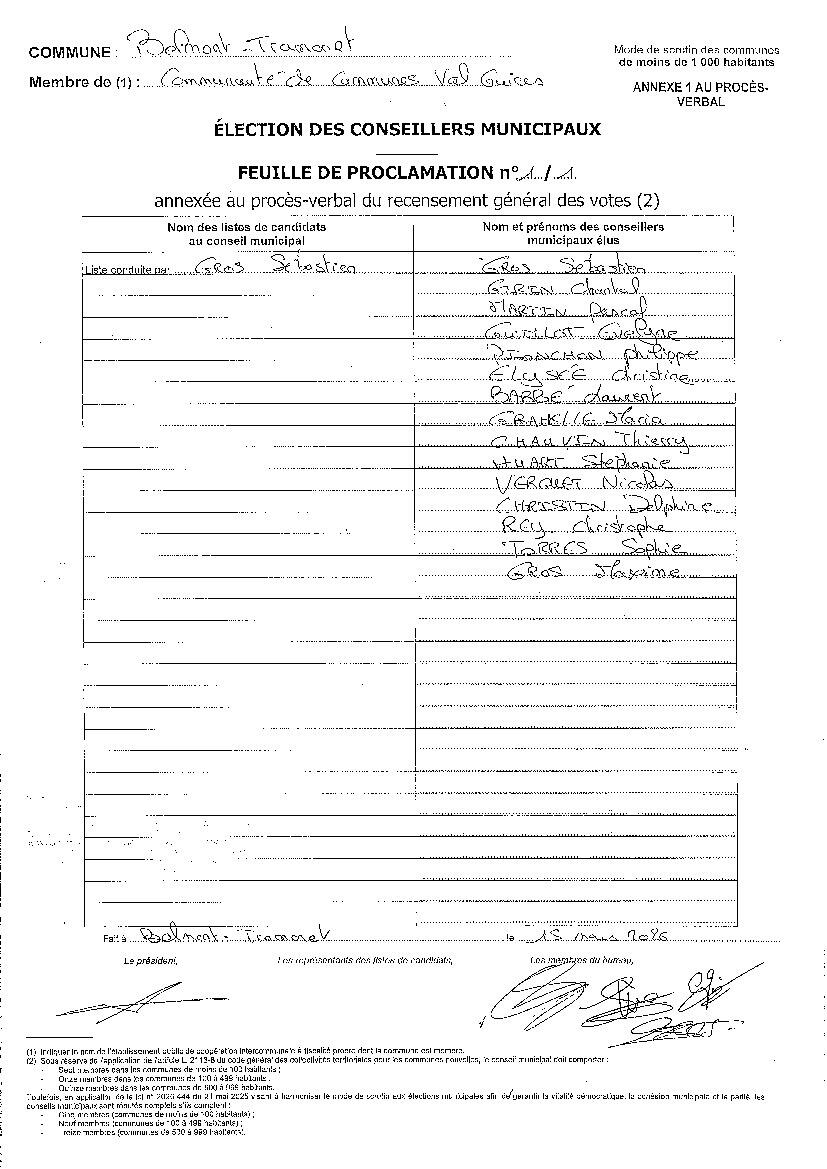 COMMUNE : Belmont-Tramonet
Mode de scrutin des communes
de moins de 1 000 habitants
Membre de (1) : Communauté de Communes Val Guiers
ANNEXE 1 AU PROCÈS-
VERBAL
ÉLECTION DES CONSEILLERS MUNICIPAUX
FEUILLE DE PROCLAMATION n° 1 / 1
annexée au procès-verbal du recensement général des votes (2)
Nom des listes de candidats
au conseil municipal
Nom et prénoms des conseillers
municipaux élus
Liste conduite par GROS Sébastien
GROS Sébastien
GIRIN Chantal
MARTIN Pascal
GUILLOT Evelyne
PLANCHON Philippe
ELYSÉE Christine
BARBE Laurent
Maria
CHAUVIN Thierry
HUART Stéphanie
VERGUET Nicolas
CHRISTIN Delphine
REY Christophe
TORRES Sophie
GROS Maxime
Fait à Belmont-Tramonet le 15 mars 2026
Le président,
Les représentants des listes de candidats,
Les membres du bureau,
(1) Indiquer le nom de l'établissement public de coopération intercommunale à fiscalité propre dont la commune est membre.
(2) Sous réserve de l'application de l'article L. 2113-8 du code général des collectivités territoriales pour les communes nouvelles, le conseil municipal doit comporter :
- Sept membres dans les communes de moins de 100 habitants ;
- Onze membres dans les communes de 100 à 499 habitants ;
- Quinze membres dans les communes de 500 à 999 habitants.
Toutefois, en application de la loi n° 2025-444 du 21 mai 2025 visant à harmoniser le mode de scrutin aux élections municipales afin de garantir la vitalité démocratique, la cohésion municipale et la parité, les
conseils municipaux sont réputés complets s'ils comptent :
- Cinq membres (communes de moins de 100 habitants) ;
- Neuf membres (communes de 100 à 499 habitants) ;
- Treize membres (communes de 500 à 999 habitants).